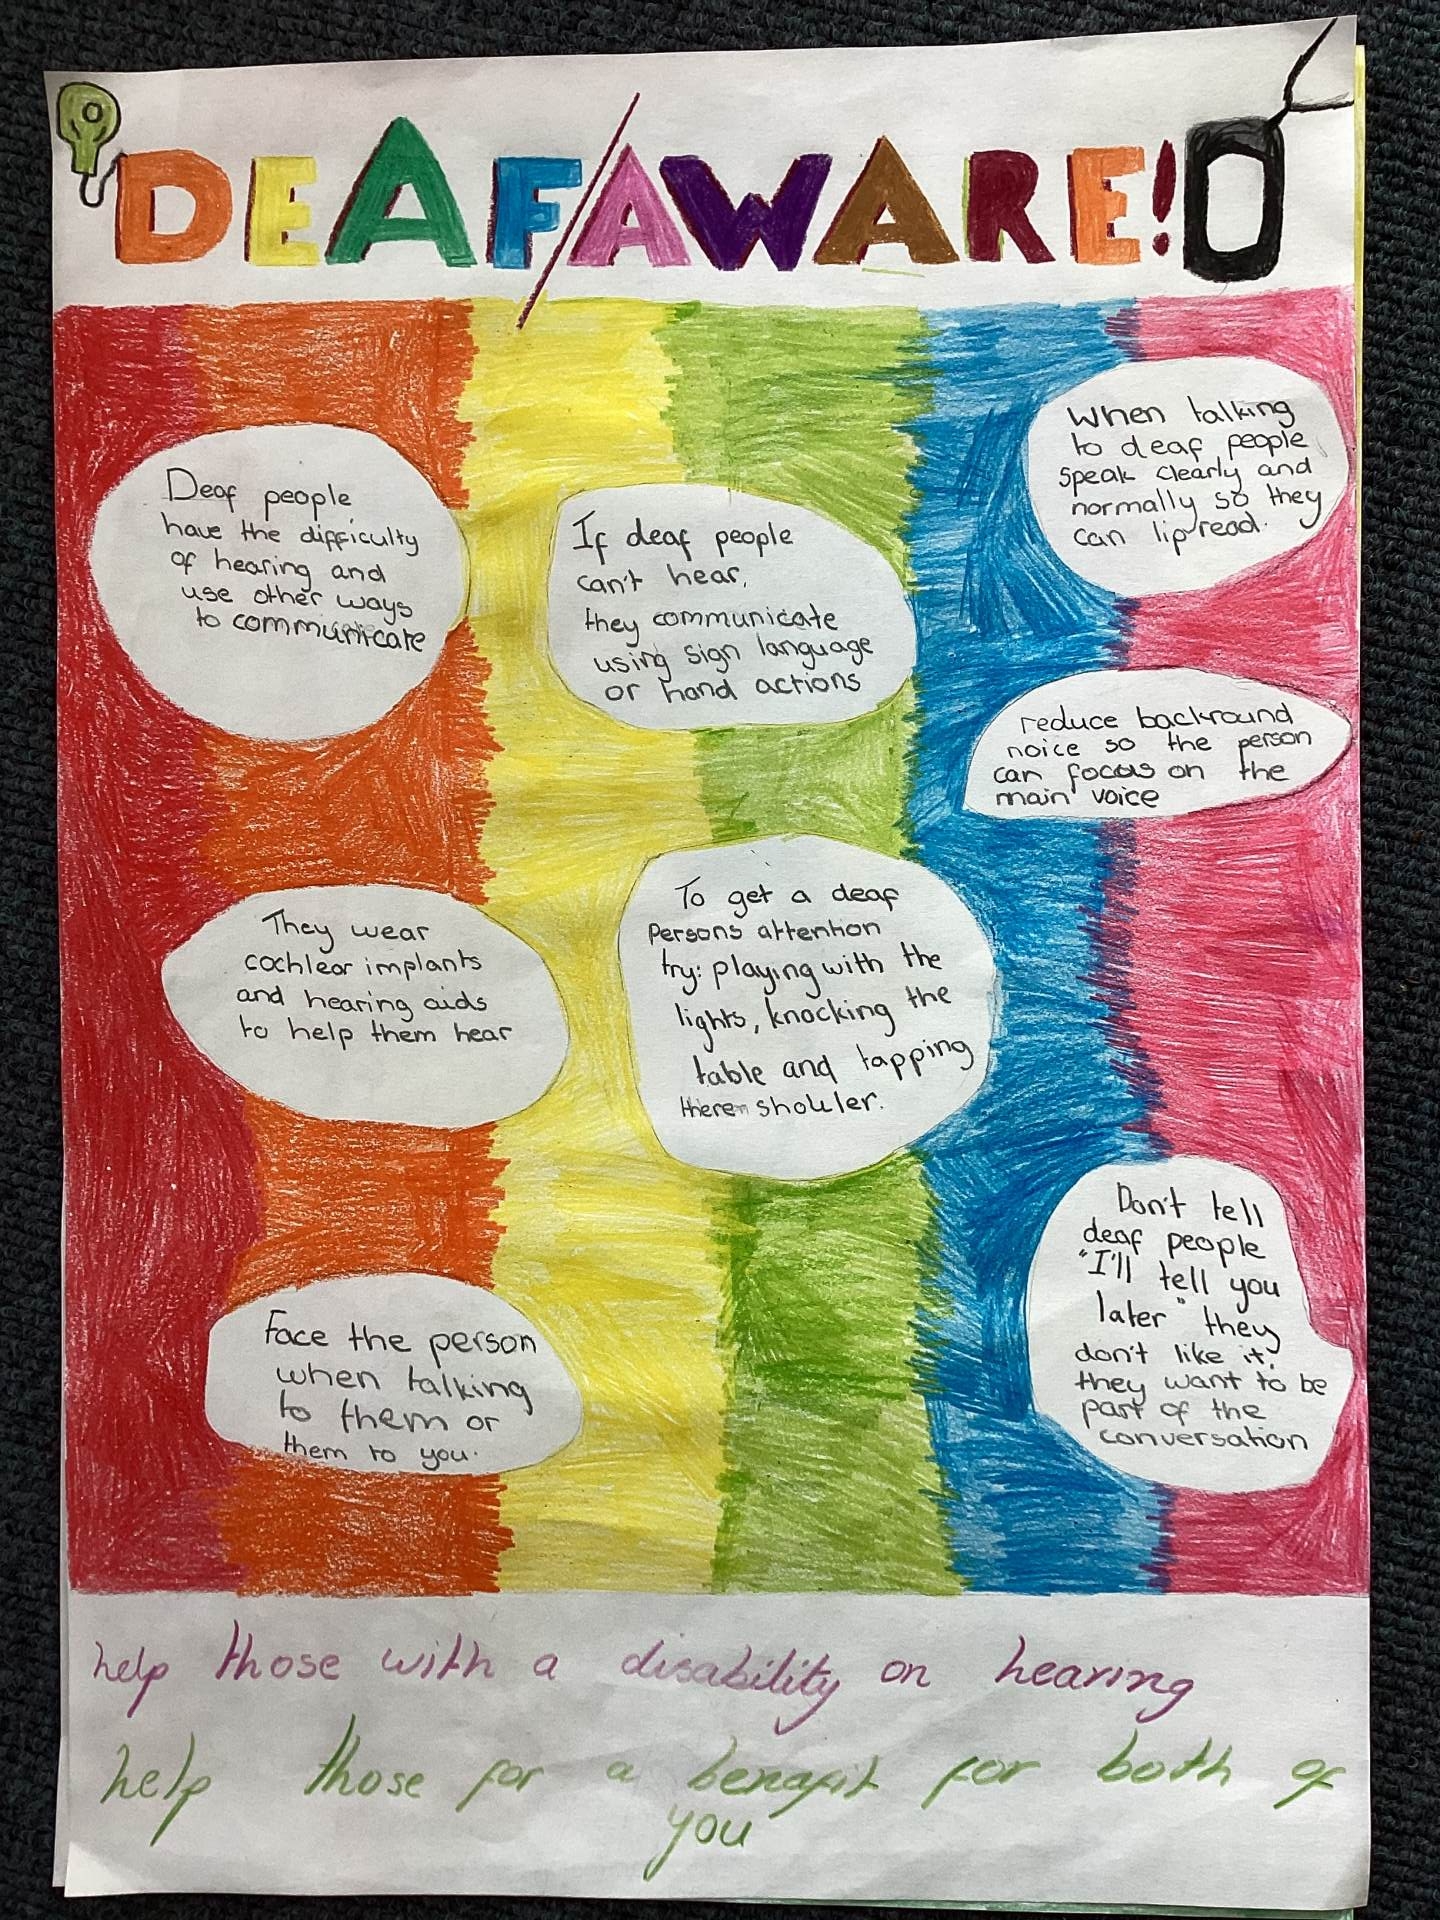 DEAF/AWARE!
Deaf people
have the difficulty
of hearing and
use other ways
to communicate
If deaf people
can't hear,
they communicate
using sign language
or hand actions
When talking
to deaf people
speak clearly and
normally so they
can lipread.
reduce backround
noice so the person
can focus on the
main voice
They wear
cochlear implants
and hearing aids
to help them hear
To get a deaf
persons attention
try: playing with the
lights, knocking the
table and tapping
there shouler.
Face the person
when talking
to them or
them to you.
Don't tell
deaf people
"I'll tell you
later" they
don't like it,
they want to be
part of the
conversation
help those with a disability on hearing
help those for a benafit for both of
you